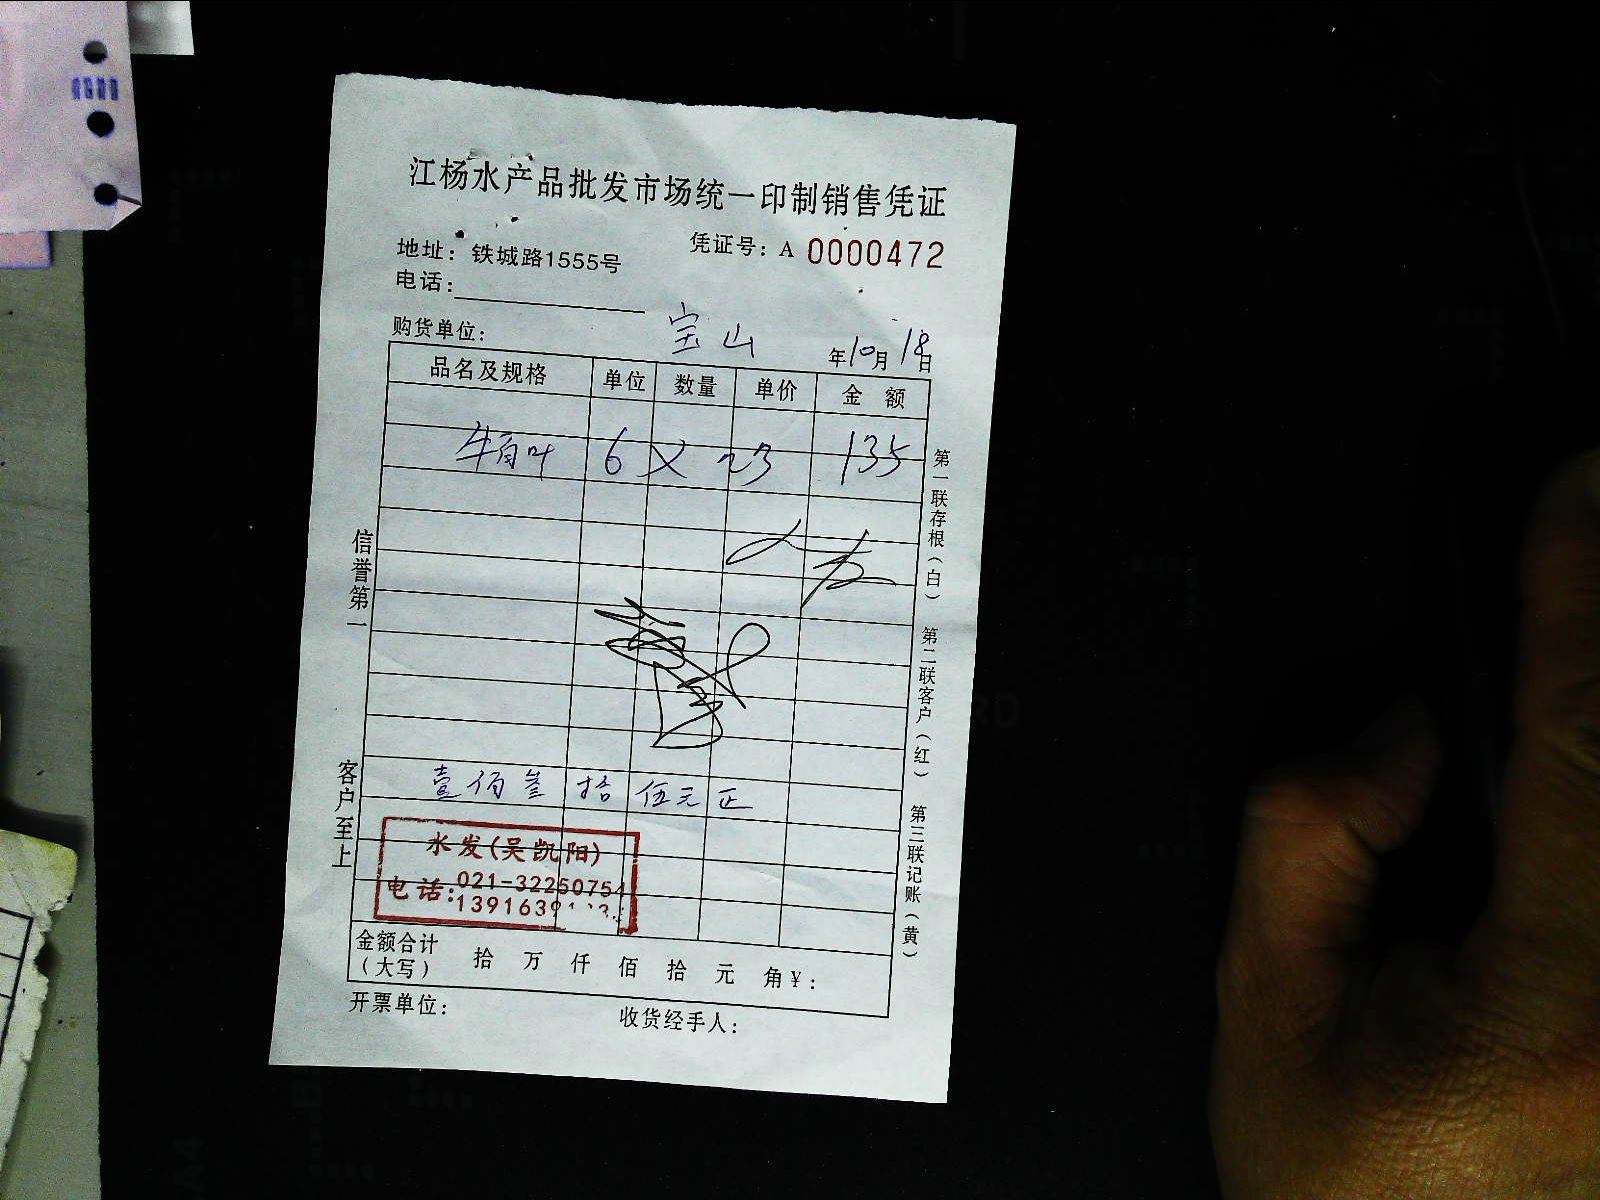 江杨水产品批发市场统一印制销售凭证
凭证号：A 0000472
地址：铁城路1555号
电话：
购货单位：
宝山
年10月18日
品名及规格 单位 数量 单价 金 额
牛百叶 6 × 23 135
壹佰叁拾伍元正
水发(吴凯阳)
电话:021-32250754
金额合计
（大写） 拾 万 仟 佰 拾 元 角¥：
开票单位： 收货经手人：
信誉第一
客户至上
第一联存根（白）
第二联客户（红）
第三联记账（黄）